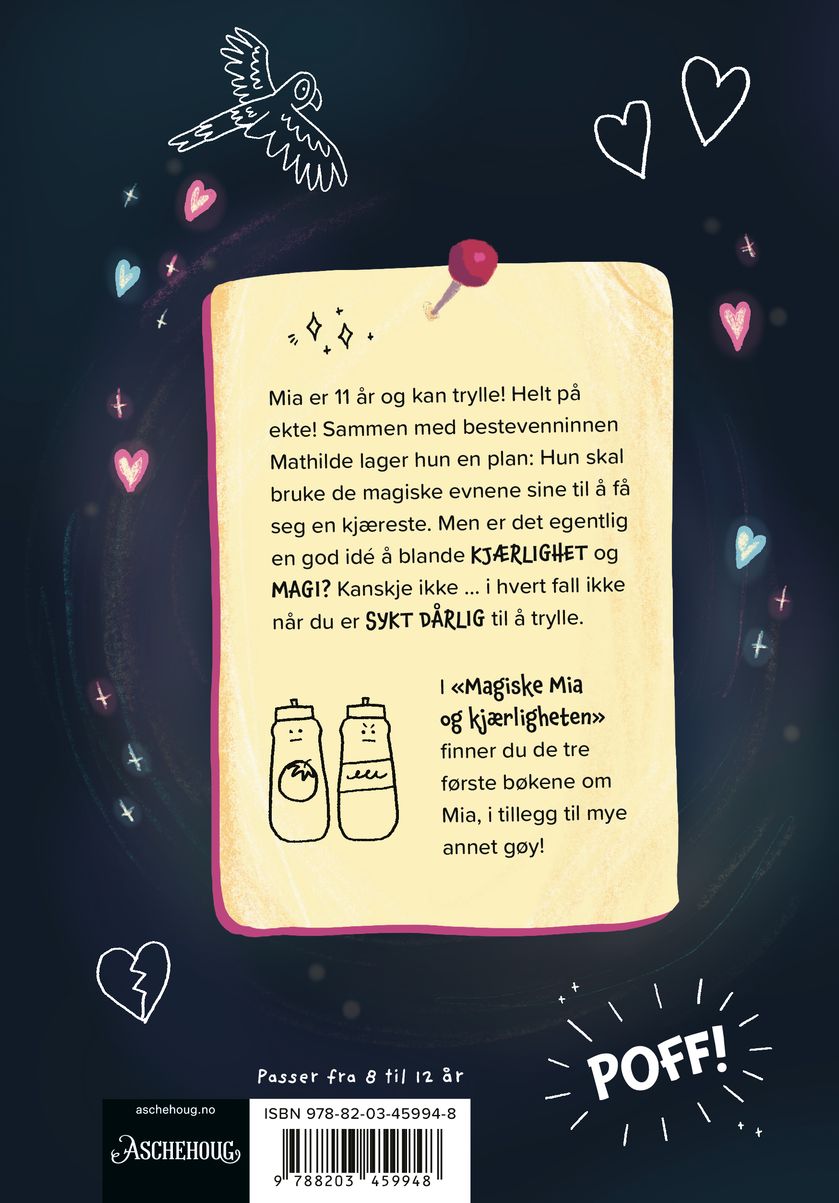 Mia er 11 år og kan trylle! Helt på
ekte! Sammen med bestevenninnen
Mathilde lager hun en plan: Hun skal
bruke de magiske evnene sine til å få
seg en kjæreste. Men er det egentlig
en god idé å blande KJÆRLIGHET og
MAGI? Kanskje ikke ... i hvert fall ikke
når du er SYKT DÅRLIG til å trylle.
I «Magiske Mia
og kjærligheten»
finner du de tre
første bøkene om
Mia, i tillegg til mye
annet gøy!
POFF!
Passer fra 8 til 12 år
aschehoug.no
ASCHEHOUG
ISBN 978-82-03-45994-8
9 788203 459948